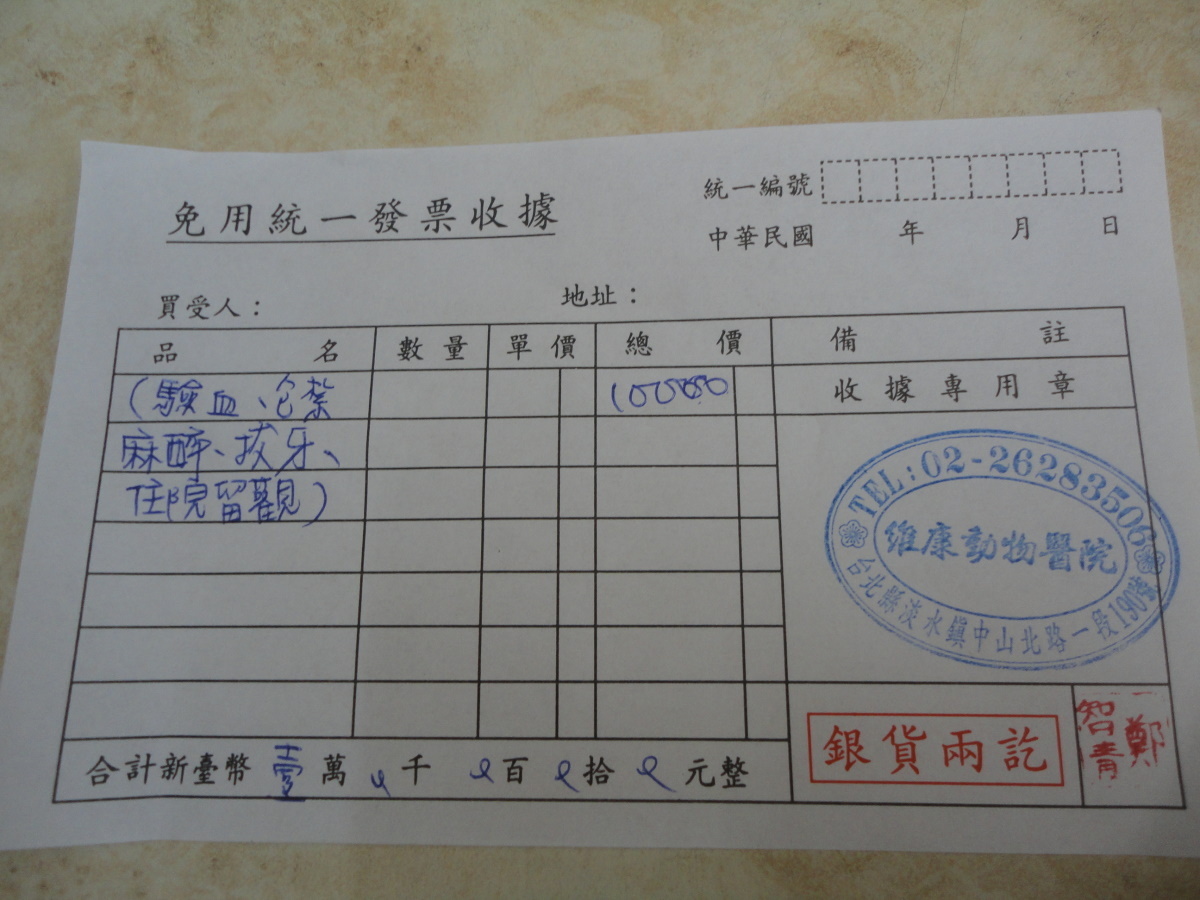 免用統一發票收據
統一編號
中華民國 年 月 日
買受人： 地址：
品名 數量 單價 總價 備註
(驗血、包紮 10000 收據專用章
麻醉、拔牙、
住院留觀)
TEL:02-26283506
維康動物醫院
台北縣淡水鎮中山北路一段190號
合計新臺幣 壹 萬 千 百 拾 元整
銀貨兩訖
鄭智青